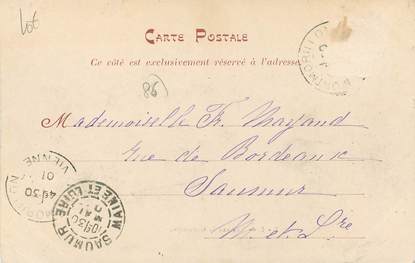 Lot
CARTE POSTALE
Ce côté est exclusivement réservé à l'adresse
98
Mademoiselle Fr. Mayaud
Rue de Bordeaux
Saumur
M. et Lre
VIENNE
SAUMUR
MAINE ET LOIRE